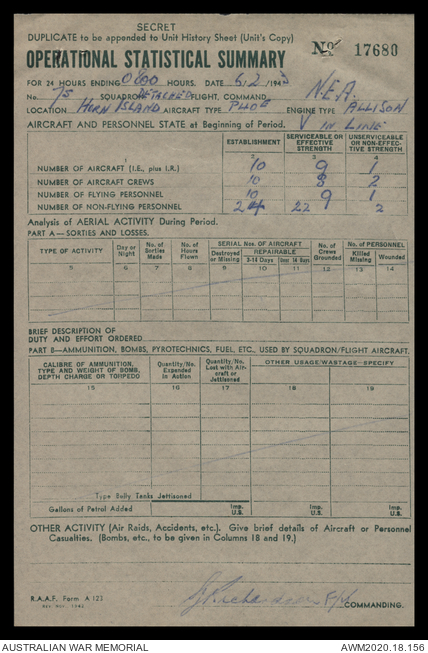 SECRET
DUPLICATE to be appended to Unit History Sheet (Unit's Copy)
OPERATIONAL STATISTICAL SUMMARY
No 17680
FOR 24 HOURS ENDING 0600 HOURS. DATE 6.2./1943
No. 75 SQUADRON DETACHED FLIGHT, COMMAND N.E.A.
LOCATION HORN ISLAND AIRCRAFT TYPE P40E ENGINE TYPE ALLISON
AIRCRAFT AND PERSONNEL STATE at Beginning of Period. V IN LINE
ESTABLISHMENT SERVICEABLE OR EFFECTIVE STRENGTH UNSERVICEABLE OR NON-EFFECTIVE STRENGTH
1 2 3 4
NUMBER OF AIRCRAFT (I.E., plus I.R.) 10 9 1
NUMBER OF AIRCRAFT CREWS 10 8 2
NUMBER OF FLYING PERSONNEL 10 9 1
NUMBER OF NON-FLYING PERSONNEL 24 22 2
Analysis of AERIAL ACTIVITY During Period.
PART A—SORTIES AND LOSSES.
TYPE OF ACTIVITY Day or Night No. of Sorties Made No. of Hours Flown SERIAL Nos. OF AIRCRAFT Destroyed or Missing REPAIRABLE 2-14 Days Over 14 days No. of Crews Grounded No. of PERSONNEL Killed Missing Wounded
5 6 7 8 9 10 11 12 13 14
BRIEF DESCRIPTION OF
DUTY AND EFFORT ORDERED
PART B—AMMUNITION, BOMBS, PYROTECHNICS, FUEL, ETC., USED BY SQUADRON/FLIGHT AIRCRAFT.
CALIBRE OF AMMUNITION, TYPE AND WEIGHT OF BOMB, DEPTH CHARGE OR TORPEDO Quantity/No. Expended in Action Quantity/No. Lost with Aircraft or Jettisoned OTHER USAGE/WASTAGE—SPECIFY
15 16 17 18 19
Type Belly Tanks Jettisoned
Gallons of Petrol Added Imp. U.S. Imp. U.S. Imp. U.S.
OTHER ACTIVITY (Air Raids, Accidents, etc.). Give brief details of Aircraft or Personnel
Casualties. (Bombs, etc., to be given in Columns 18 and 19.)
R.A.A.F. Form A 123
Richardson F/L COMMANDING.
AUSTRALIAN WAR MEMORIAL AWM2020.18.156